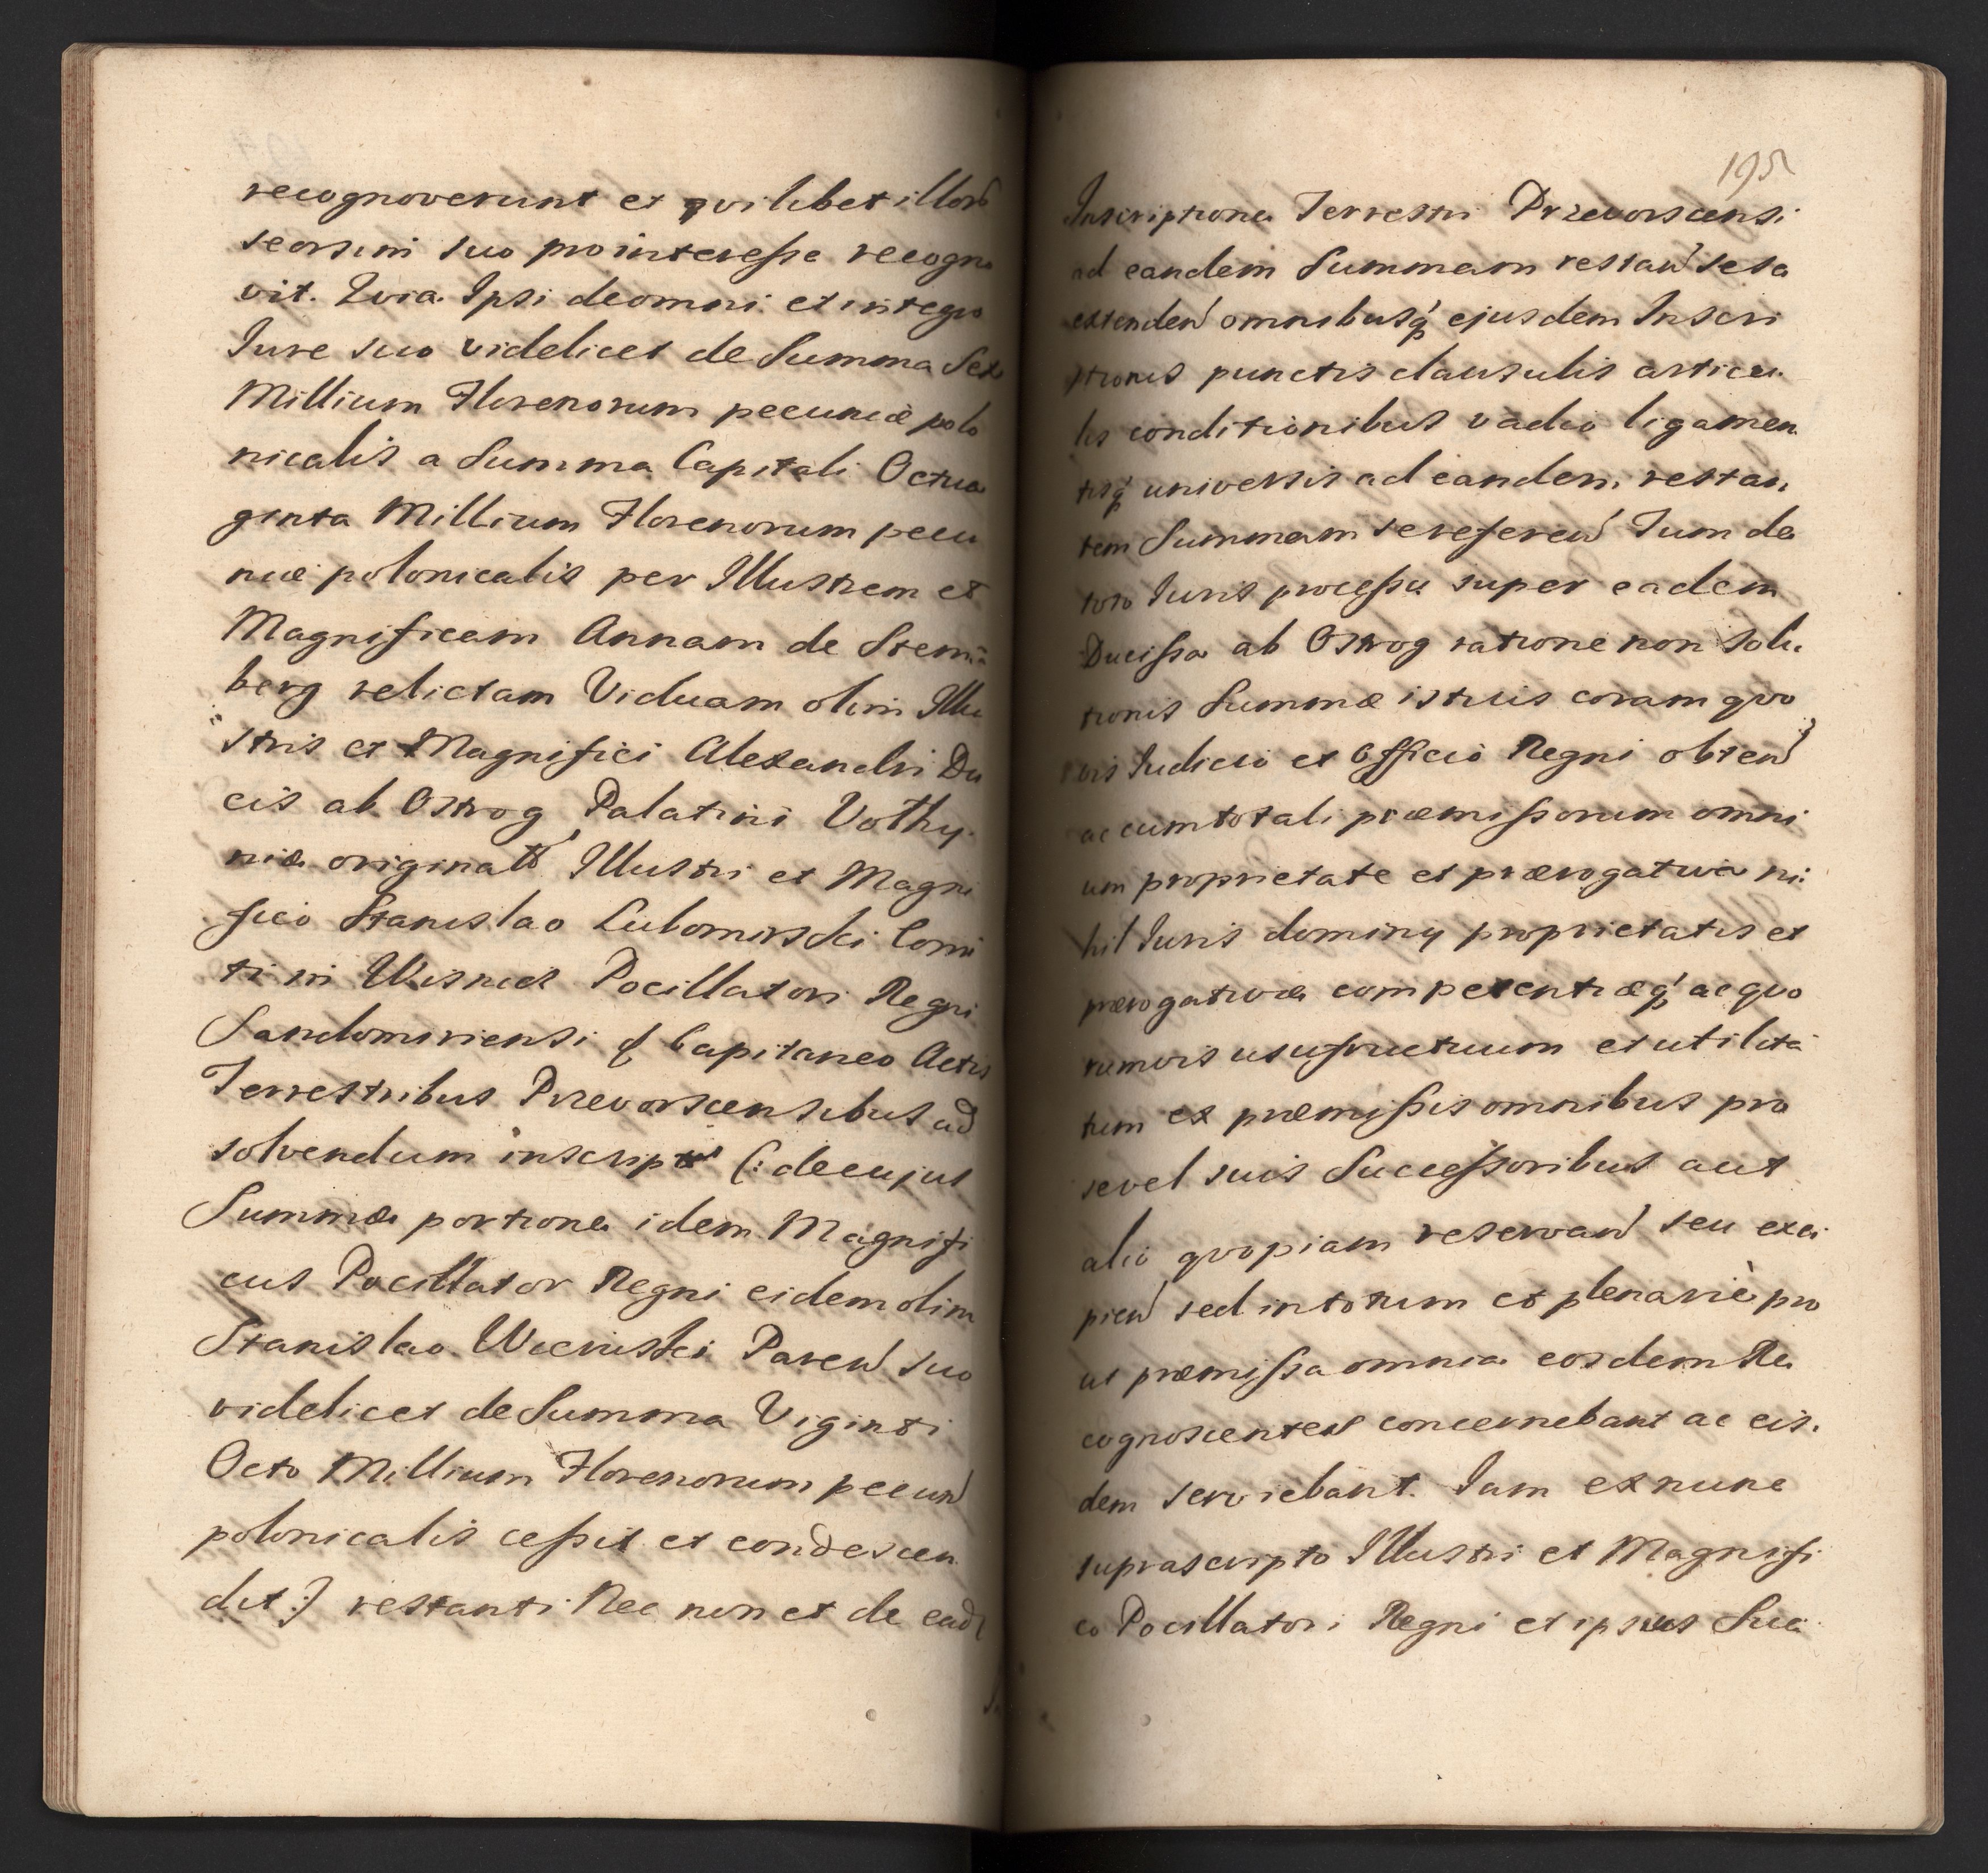 recognoverunt et quilibet illorũ
seorsim suo pro interesse recogno
vit. Quia Ipsi de omni et integro
Iure suo videlicet de Summa Sex
Millium Florenorum pecuniæ polo
nicalis a Summa Capitali Octua
ginta Millium Florenorum pecu
niæ polonicalis per Illustrem et
Magnificam Annam de Stem̃
berg relictam Viduam olim Illu
stris et Magnifici Alexandri Du
cis ab Ostrog Palatini Volhy
niæ originalr̃ Illustri et Magni
fico Stanislao Lubomirski Comi
ti in Wisnicz Pocillatori Regni
Sandomiriensi &c Capitaneo Actis
Terrestribus Przevorscensibus ad
solvendum inscripta (: de cujus
Summæ portione idem Magnifi
cus Pocillator Regni eidem olim
Stanislao Wiewiski Paren suo
videlicet de Summa Viginti
Octo Millium Florenorum pecun
polonicalis cessit et condescen
dit :) restanti Nec non et de ead
195
Inscriptione Terrestri Przevorscensi
ad eandem Summam restan sese
extenden omnibusq́ ejusdem Inscri
ptionis punctis clausulis articu
lis conditionibus vadio ligamen
tisq́ universis ad eandem restan
tem Summam se referen Tum de
toto Iuris processu super eadem
Ducissa ab Ostrog ratione non solu
tionis Summæ istius coram quo
vis Iudicio et Officio Regni obten
ac cum totali præmissorum omni
um proprietate et prærogativa ni
hil Iuris dominij proprietatis et
prærogativæ competentiæq́ ac quo
rumvis usufructuum et utilita
tum ex præmissis omnibus pro
se vel suis Successoribus aut
alio quopiam reservan seu exci
pien sed in totum et plenariè pro
ut præmissa omnia eosdem Re
cognoscentes concernebant ac eis
dem serviebant. Iam ex nunc
suprascripto Illustri et Magnifi
co Pocillatori Regni et ipsius Suc